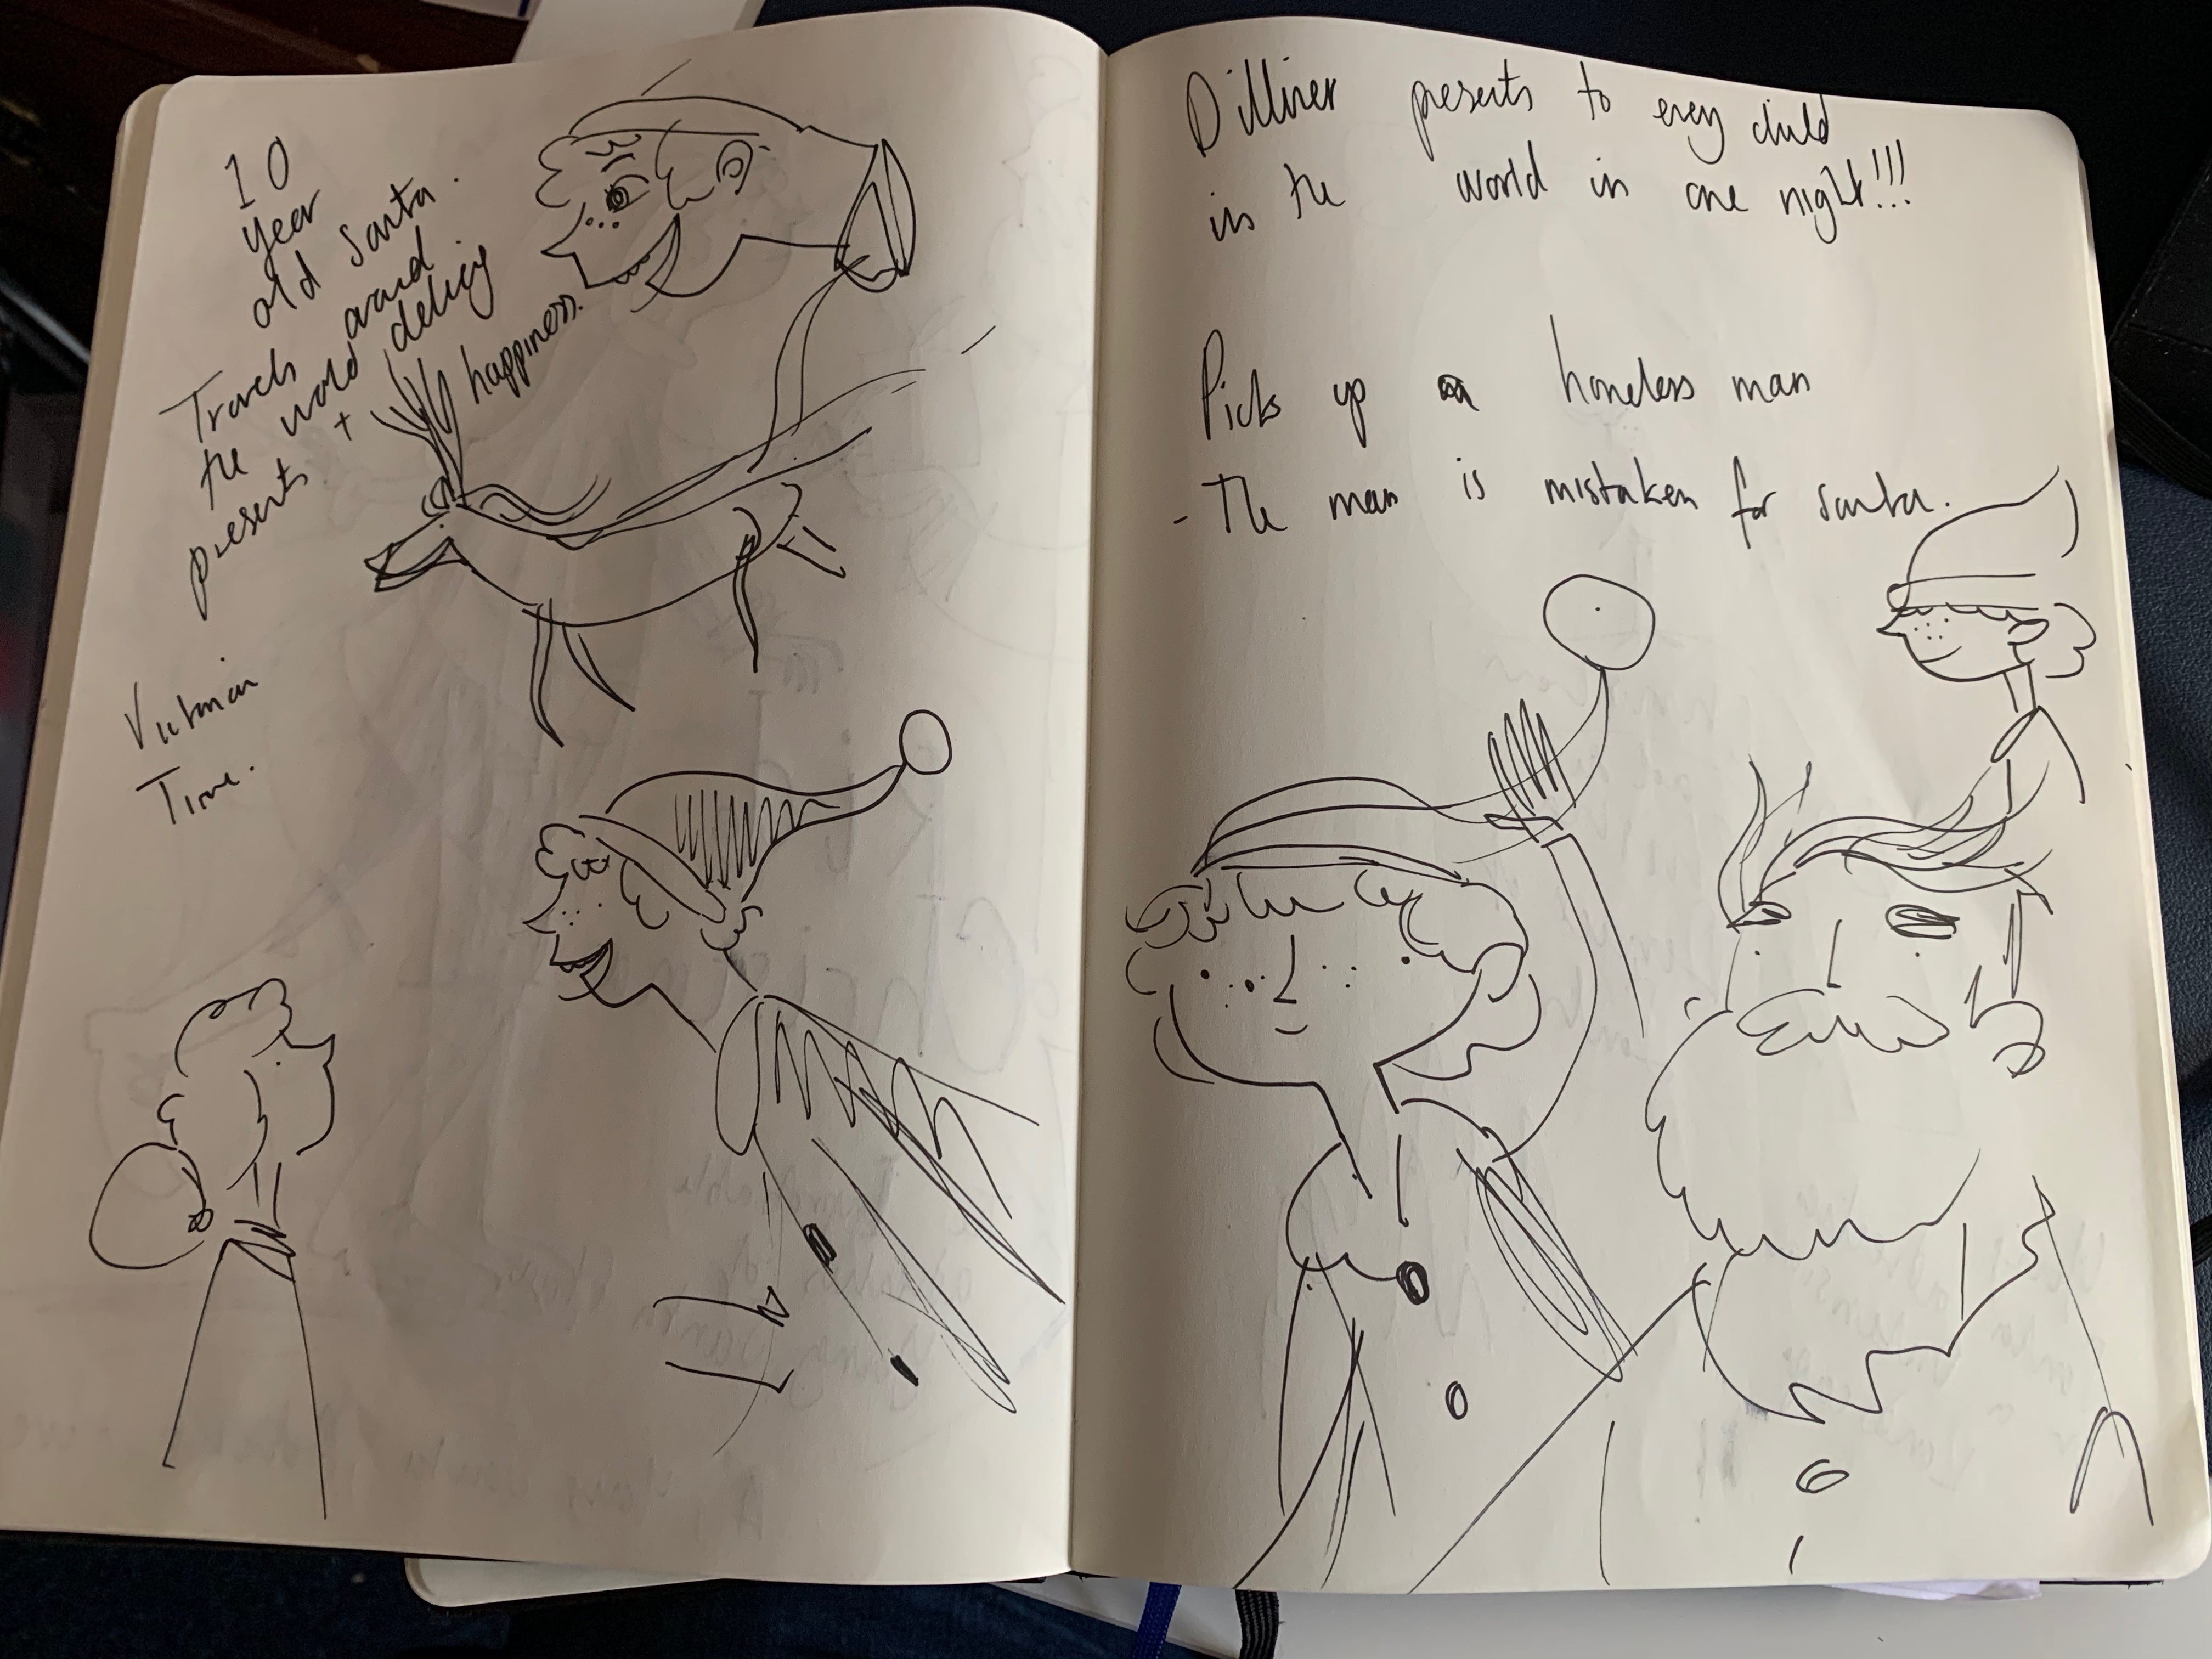 10
year
old Santa.
Travels around
the world delivering
presents + happiness.
Victorian
Time.
Dilliver presents to every child
in the world in one night!!!
Picks up a homeless man
- The man is mistaken for santa.